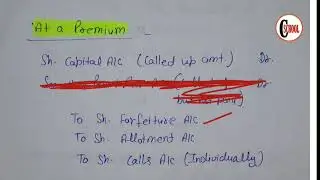 At a Premium
C SCHOOL
Sh. Capital A/c (Called up amt.) Dr.
To Sh. Forfetture A/c
To Sh. Allotment A/c
To Sh. Calls A/c (Individually)